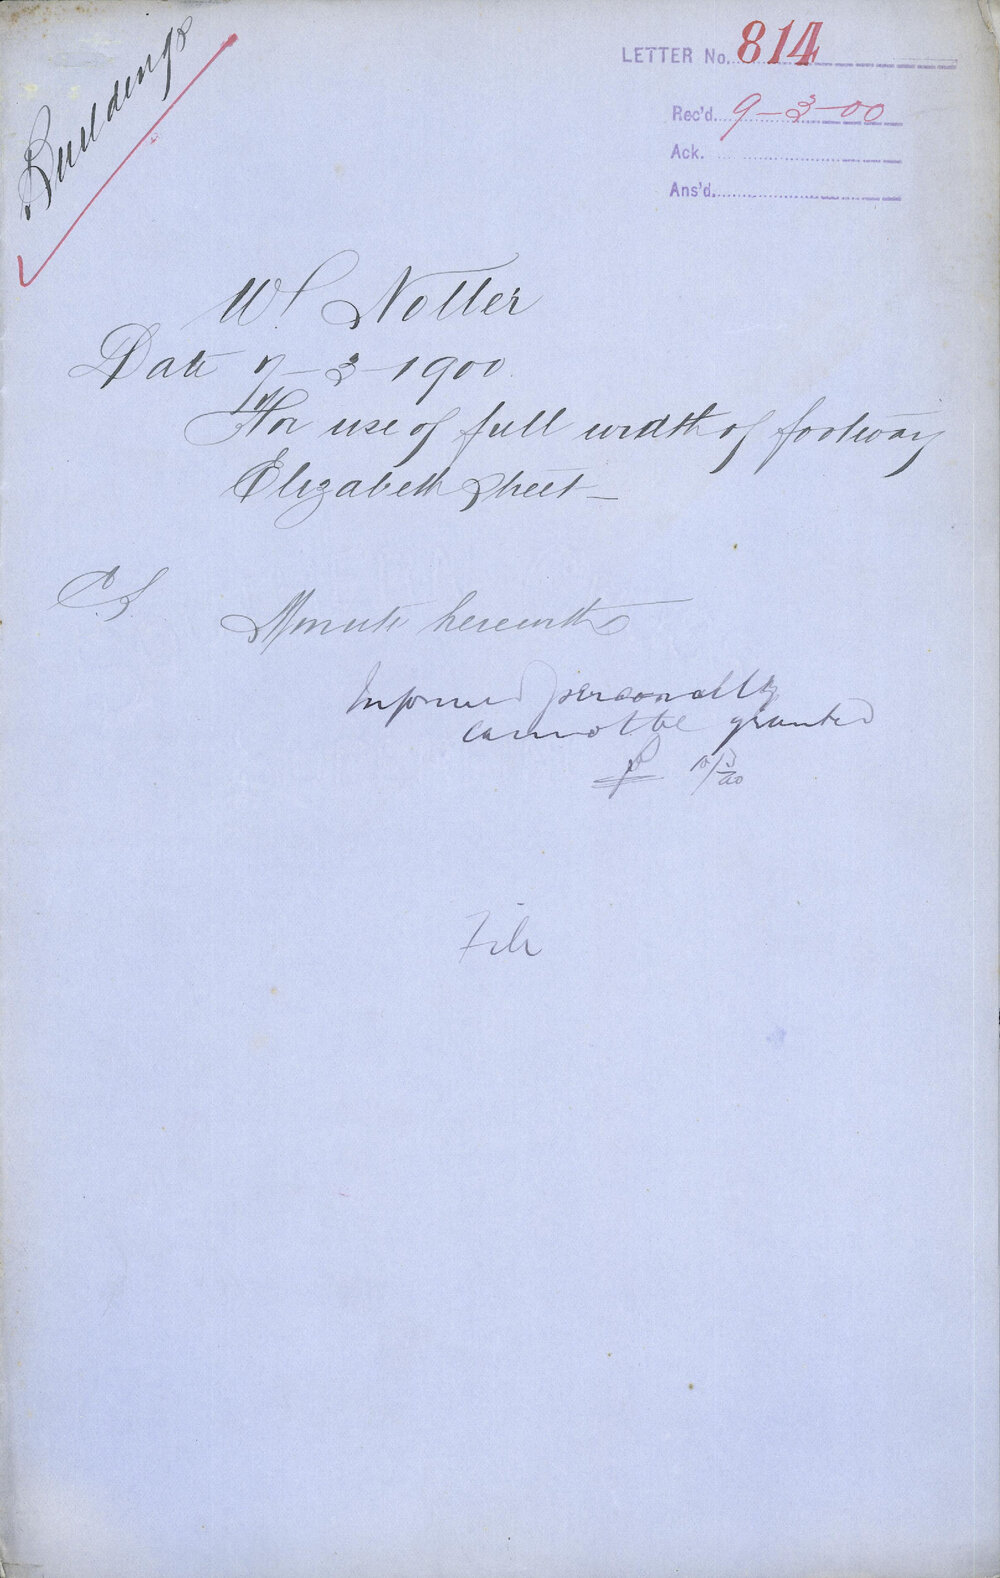 Buildings
LETTER No. 814
Rec'd. 9-3-00
Ack.
Ans'd.
W Notter
Date 7-3-1900
For use of full width of footway
Elizabeth Street
C.S. Minute herewith
Informed personally
cannot be granted
File